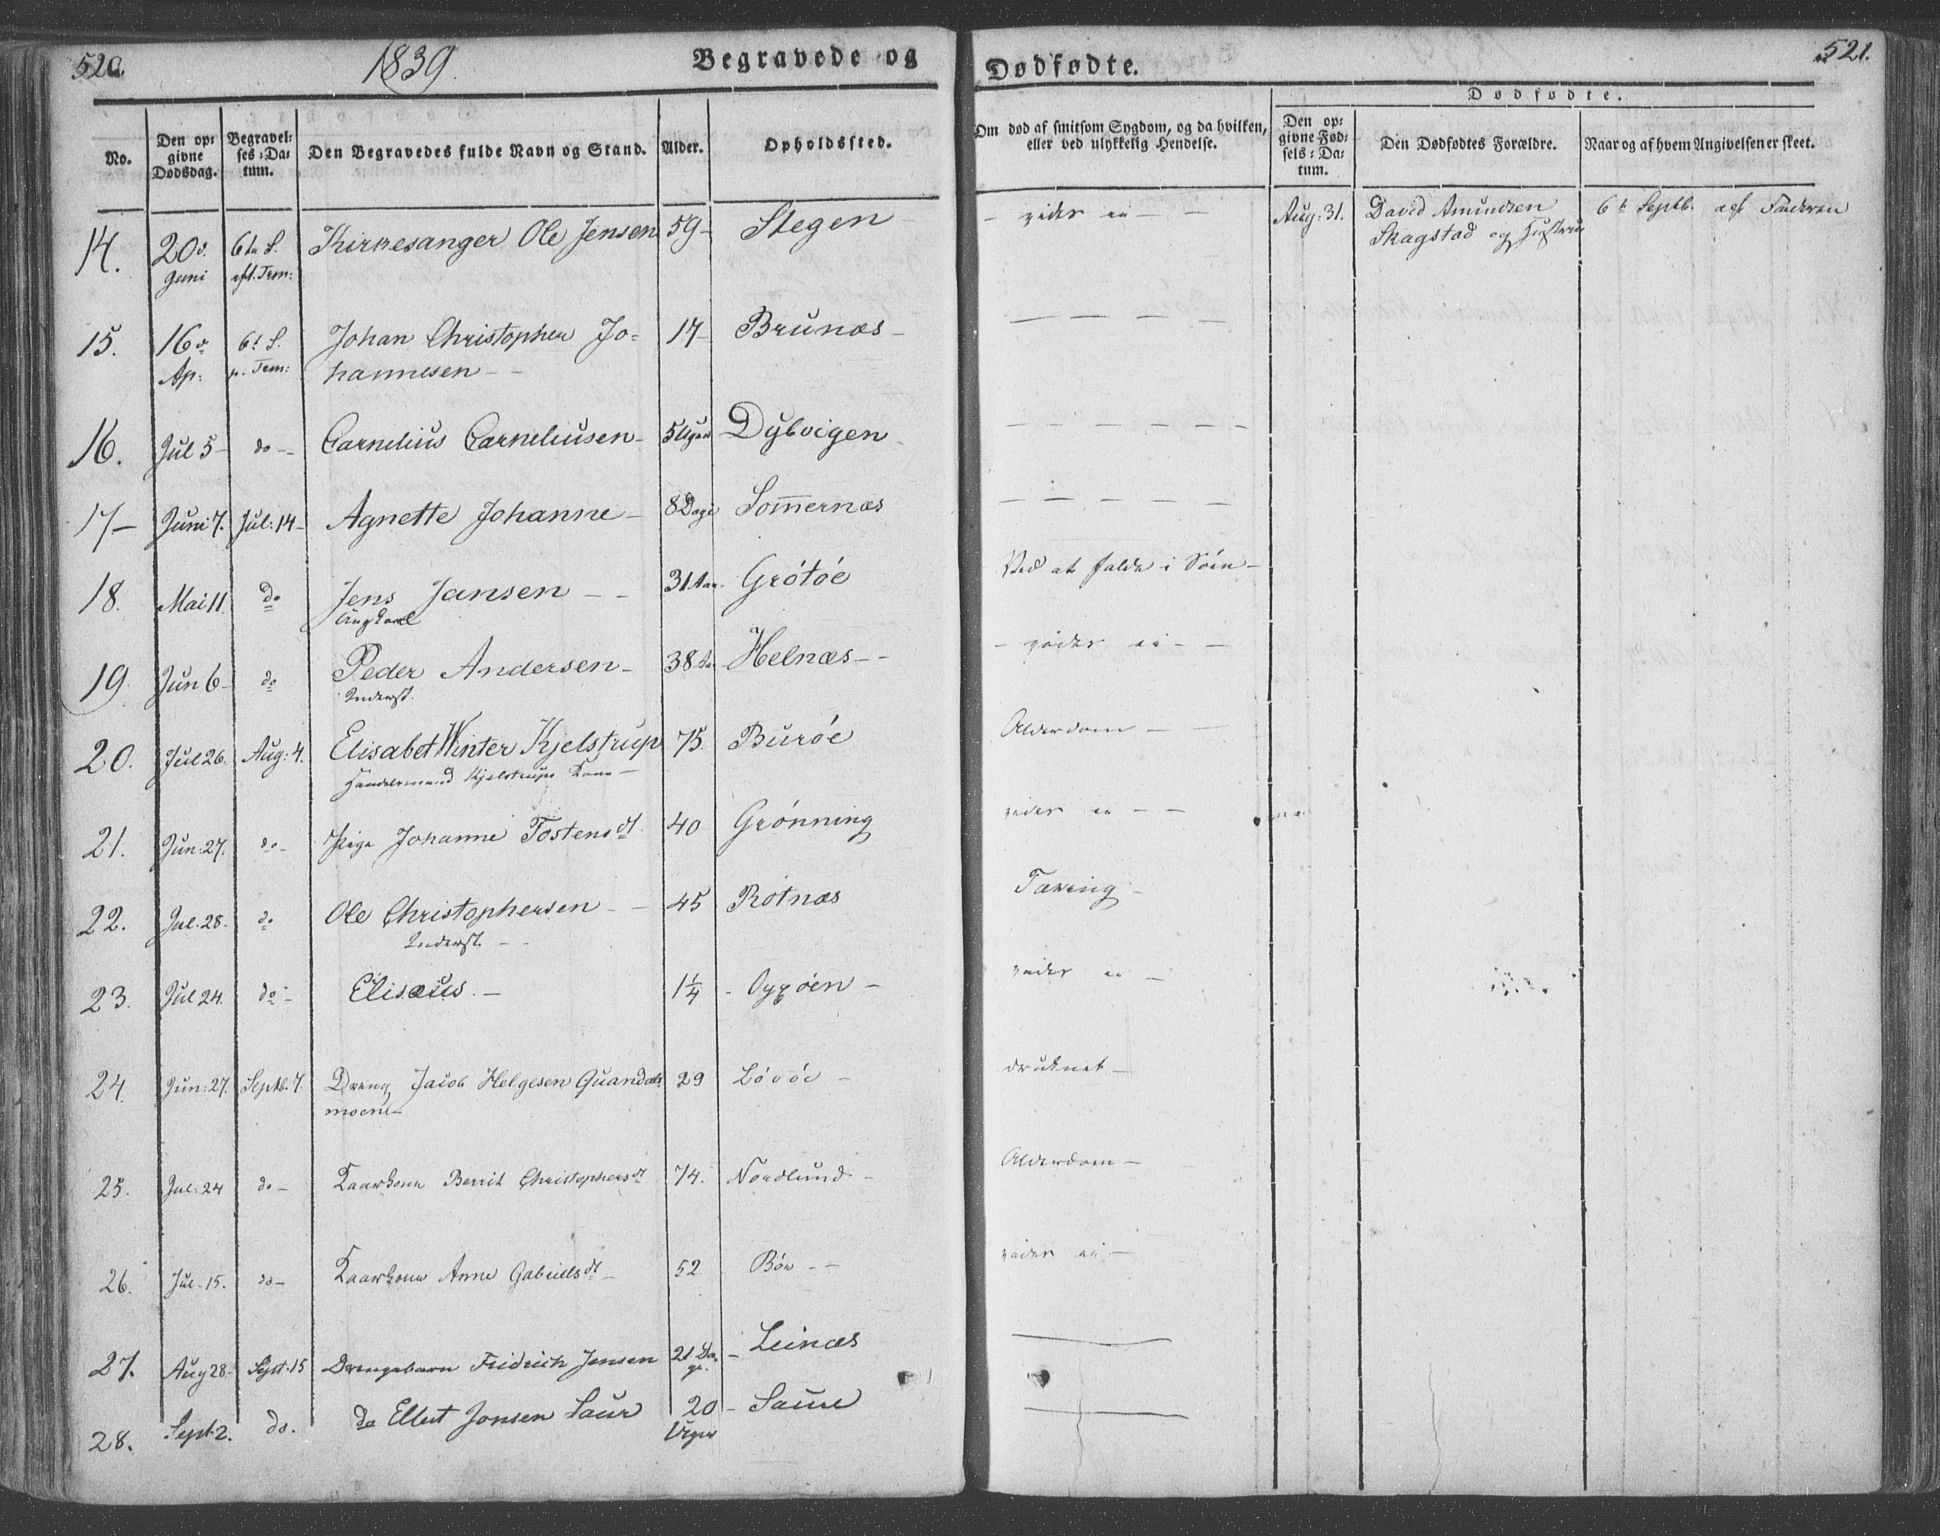 520.
1839.
Begravede og
Dødfødte.
521.
No.
Den opgivne Dødsdag.
Begravelses-Datum.
Den Begravedes fulde Navn og Stand.
Alder.
Opholdssted.
Om død af smitsom Sygdom, og da hvilken, eller ved ulykkelig Hendelse.
Dødfødte.
Den opgivne Fødsels-Datum.
Den Dødfødtes Forældre.
Naar og af hvem Angivelsen er skeet.
14. 20de Juni 6te S. eft. Trin: Kirkesanger Ole Jensen 59 Stegen – vides ei – Aug: 31. David Amundsen Skagstad og Hustrue 6te Septb. af Faderen
15. 16de Ap: 6te S. p. Trin: Johan Christopher Johannesen 17 Brunæs
16. Jul 5 do Cornelius Corneliusen 5 Uger Dybvigen
17 Juni 7. Jul: 14 Agnette Johanne 8 Dage Somernæs
18. Mai 11 do Jens Jansen Ungkarl 31 Aar Grötöe Ved at falde i Söen
19. Jun 6 do Peder Andersen Inderst. 38 Aar Helnæs – vides ei –
20. Jul 26. Aug: 4. Elisabet Winter Kjelstrup Handelsmand Kjelstrups Kone 75. Buröe Alderdom
21. Jun: 27. do Pige Johanne Tostensdt 40 Grönning vides ei
22. Jul. 28. do Ole Christophersen Inderst 45 Rotnæs Tæring
23. Jul 24. do Elisæus 1 1/4 vides ei
24. Jun: 27. Septb. 7. Dreng Jacob Helgesen Quandalsmoene 29 Lövöe druknet
25. Jul: 24 do Kaarkone Berrit Christophersdt 74. Nordlund Alderdom
26. Jul. 15. do Kaarkone Anne Gabrielsdt 52 Böe vides ei
27. Aug 28 Sept: 15 Drengebarn Fridrich Jensen 21 Dage Leinæs
28. Sept. 2. do. do Ellert Jonsen Saur 20 Uger Saure